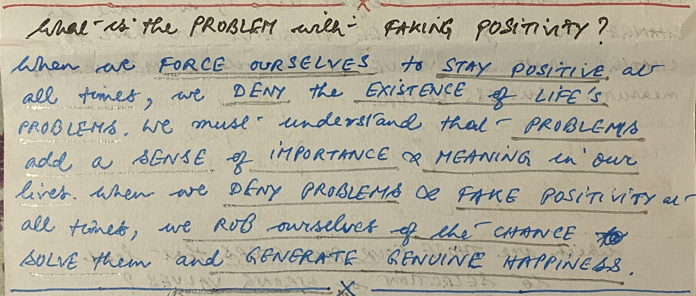 What is the PROBLEM with FAKING POSITIVITY?
When we FORCE OURSELVES to STAY POSITIVE at
all times, we DENY the EXISTENCE of LIFE'S
PROBLEMS. We must understand that PROBLEMS
add a SENSE of IMPORTANCE & MEANING in our
lives. When we DENY PROBLEMS & FAKE POSITIVITY at
all times, we ROB ourselves of the CHANCE to
SOLVE them and GENERATE GENUINE HAPPINESS.